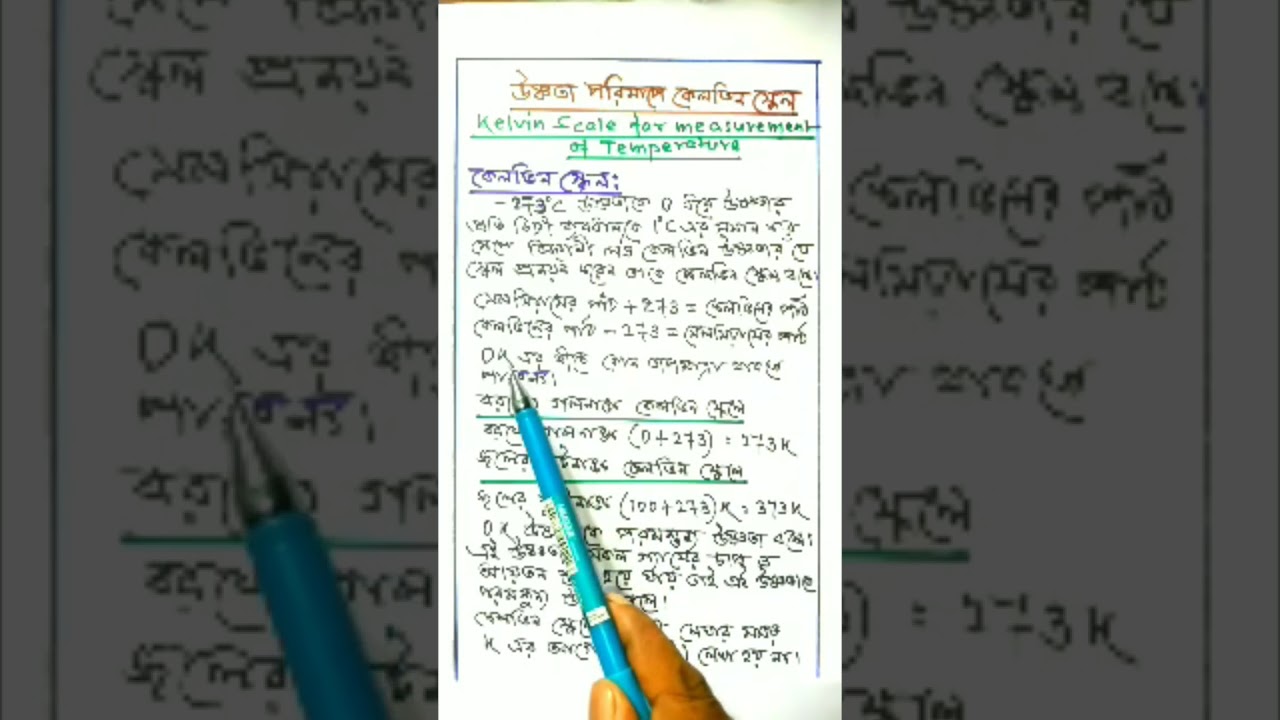 উষ্ণতা পরিমাপে কেলভিন স্কেল
Kelvin Scale for measurement
of Temperature
কেলভিন স্কেল:
-273°C উষ্ণতাকে 0 ধরে উষ্ণতার
প্রতি ডিগ্রী ব্যবধানকে 1°C এর সমান ধরে
বিজ্ঞানী লর্ড কেলভিন উষ্ণতার যে
স্কেল প্রনয়ন করেন তাকে কেলভিন স্কেল বলে।
সেলসিয়াসের পাঠ + 273 = কেলভিনের পাঠ
কেলভিনের পাঠ - 273 = সেলসিয়াসের পাঠ
0K এর নীচে কোন তাপমাত্রা থাকতে
পারেনা।
বরফের গলনাঙ্ক কেলভিন স্কেলে
বরফের গলনাঙ্ক (0+273) = 273K
জলের স্ফুটনাঙ্ক কেলভিন স্কেলে
জলের (100+273)K = 373K
0K পরমশূন্য উষ্ণতা বলে।
এই গ্যাসের চাপ ও
আয়তন হয়ে যায় তাই এই উষ্ণতাকে
পরমশূন্য বলে।
কেলভিন লেখার সময়
K এর লেখা হয় না।